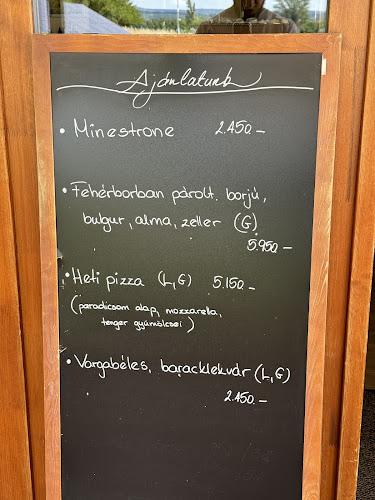 Ajánlatunk
• Minestrone 2.450.-
• Fehérborban párolt borjú,
bulgur, alma, zeller (G)
5.950.-
• Heti pizza (L,G) 5.150.-
(paradicsom alap, mozzarella,
tenger gyümölcsei)
• Vargabéles, baracklekvár (L,G)
2.450.-